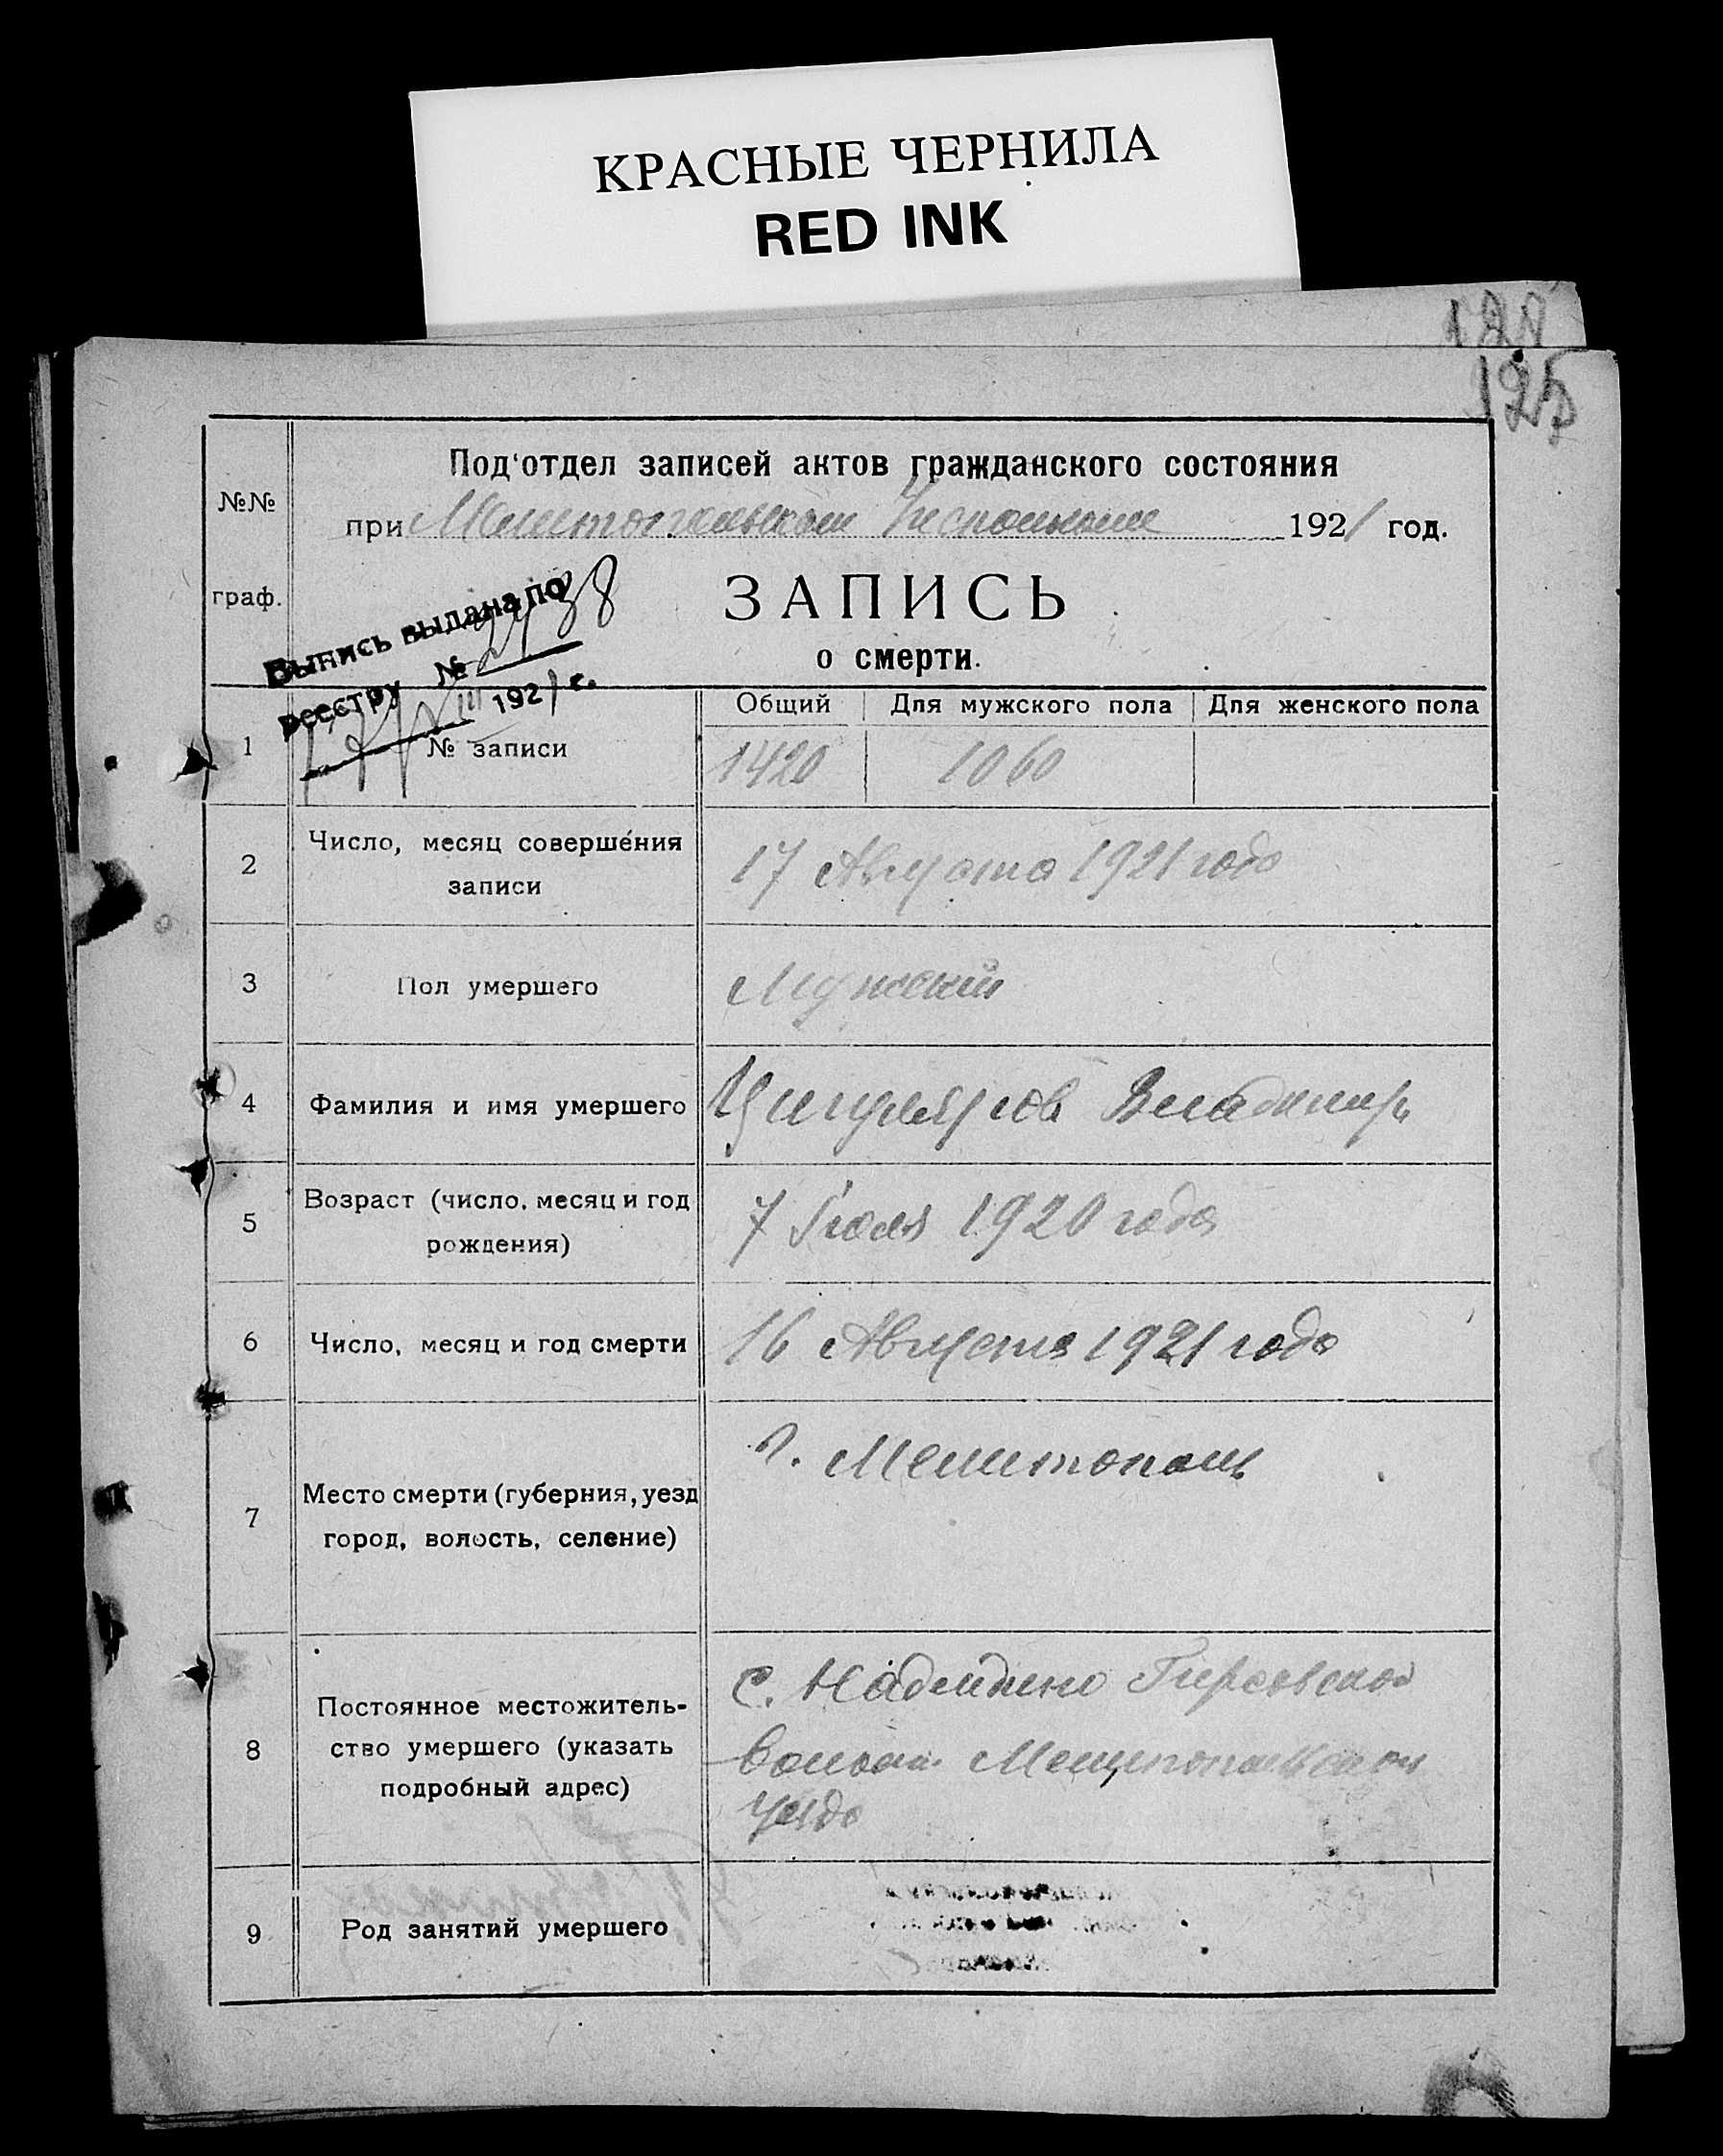 КРАСНЫЕ ЧЕРНИЛА
RED INK
128
125
№№
граф.
Под'отдел записей актов гражданского состояния
при Мелитопольском Исполкоме 1921 год.
ЗАПИСЬ
о смерти.
Выпись выдана по
реестру № 2438
III 1921 г.
Общий Для мужского пола Для женского пола
1 № записи 1420 1060
2 Число, месяц совершения
записи
17 Августа 1921 года
3 Пол умершего Мужской
4 Фамилия и имя умершего Цигуляров Владимир
5 Возраст (число, месяц и год
рождения)
7 Июля 1920 года
6 Число, месяц и год смерти 16 Августа 1921 года
7 Место смерти (губерния, уезд
город, волость, селение)
г. Мелитополь
8 Постоянное местожитель-
ство умершего (указать
подробный адрес)
с. Надеждино Гирсовской
волости Мелитопольского
уезда
9 Род занятий умершего